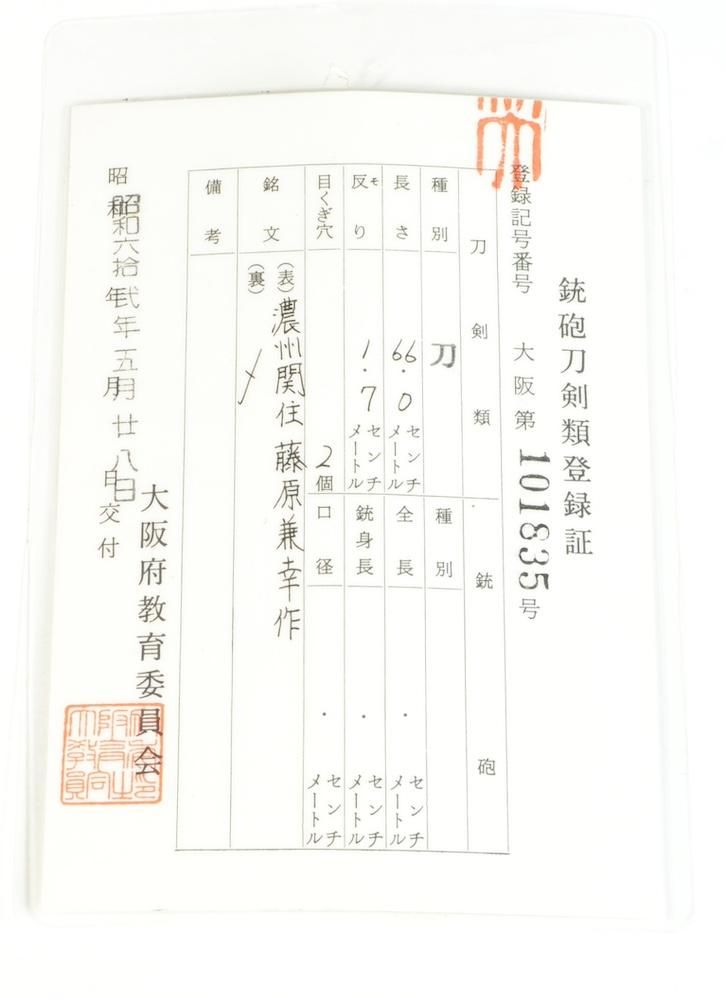 銃砲刀剣類登録証
登録記号番号 大阪第101835号
刀剣類
銃砲
種別 刀
種別
長さ 66.0センチメートル
全長 . センチメートル
反り モ 1.7センチメートル
銃身長 . センチメートル
目くぎ穴 2個
口径 . センチメートル
銘文 (表)濃州関住藤原兼幸作
(裏)
備考
昭和 年 月 日交付
昭和六拾弐年五月廿八日
大阪府教育委員会